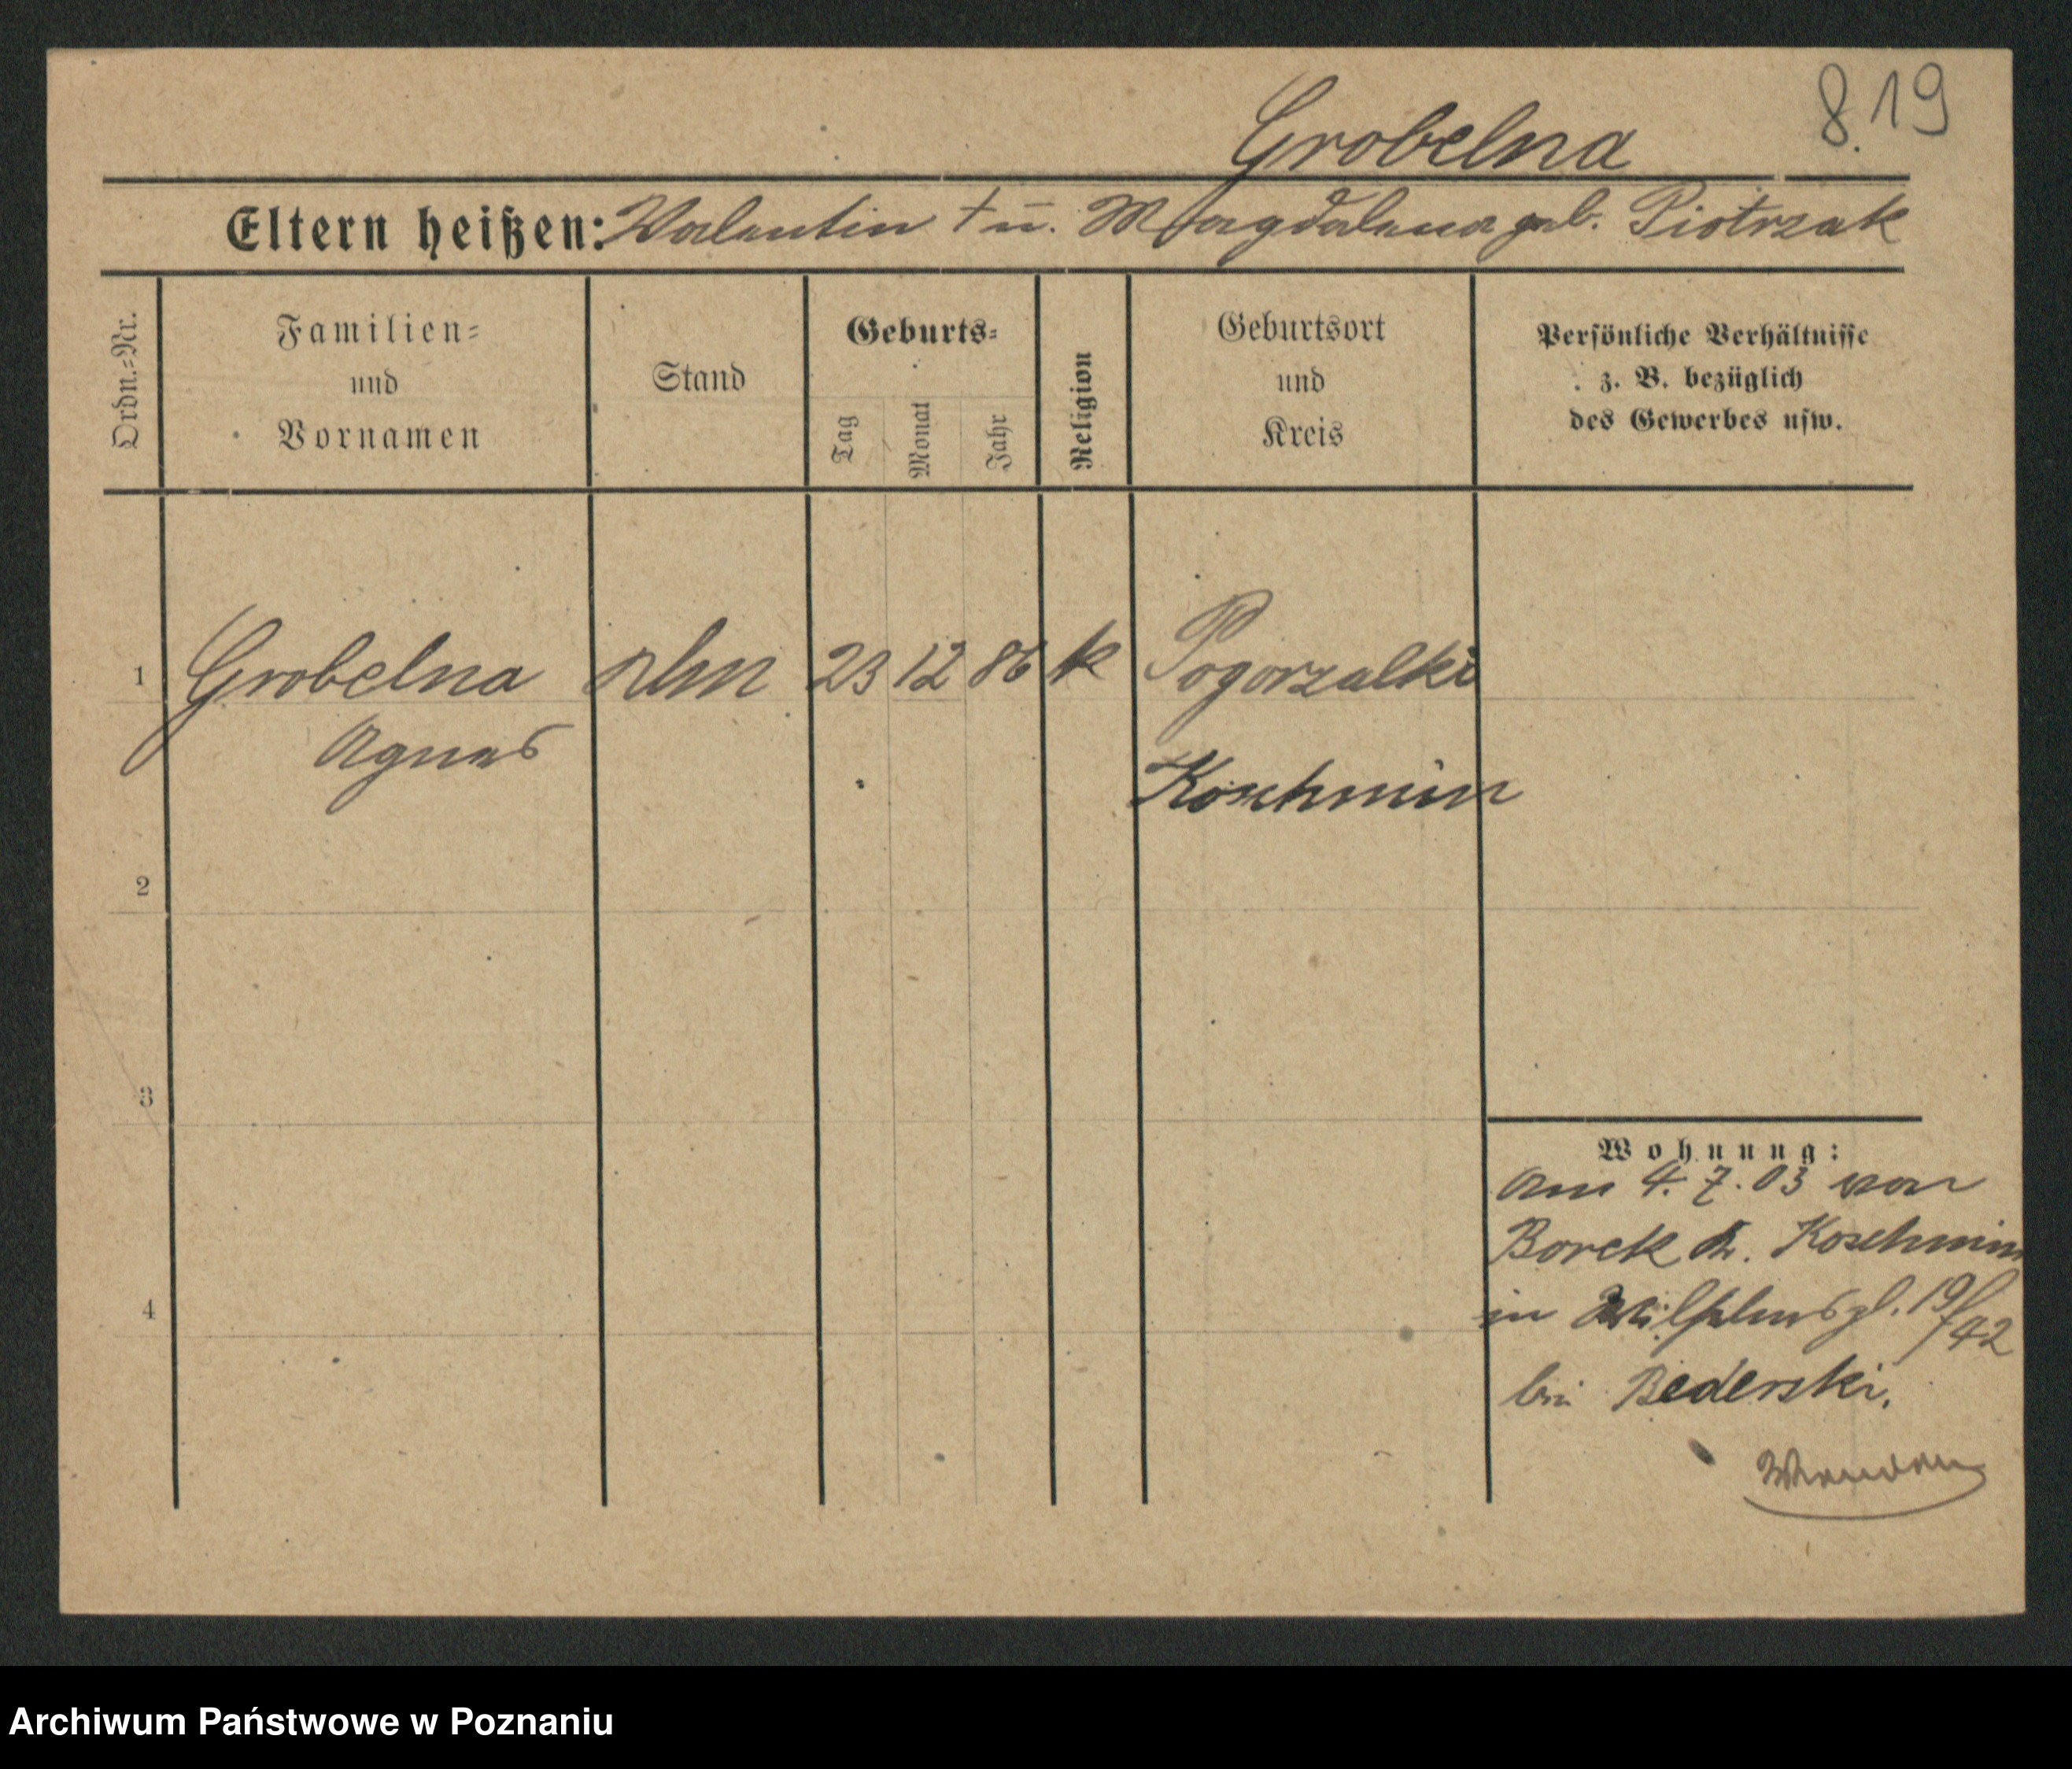 8.19
Grobelna
Eltern heißen: Valentin † u. Magdalena geb. Piotrzak
Ordn.-Nr.
Familien-
und
Vornamen
Stand
Geburts-
Tag
Monat
Jahr
Religion
Geburtsort
und
Kreis
Persönliche Verhältnisse
z. B. bezüglich
des Gewerbes usw.
1 Grobelna 23 12 86 k Pogorzalki
Agnes
Koschmin
2
3
4
Wohnung:
Am 4. 7. 03 von
Borek Kr. Koschmin
in Wilhelmspl. 19/42
bei Bederski.
Wenden
Archiwum Państwowe w Poznaniu